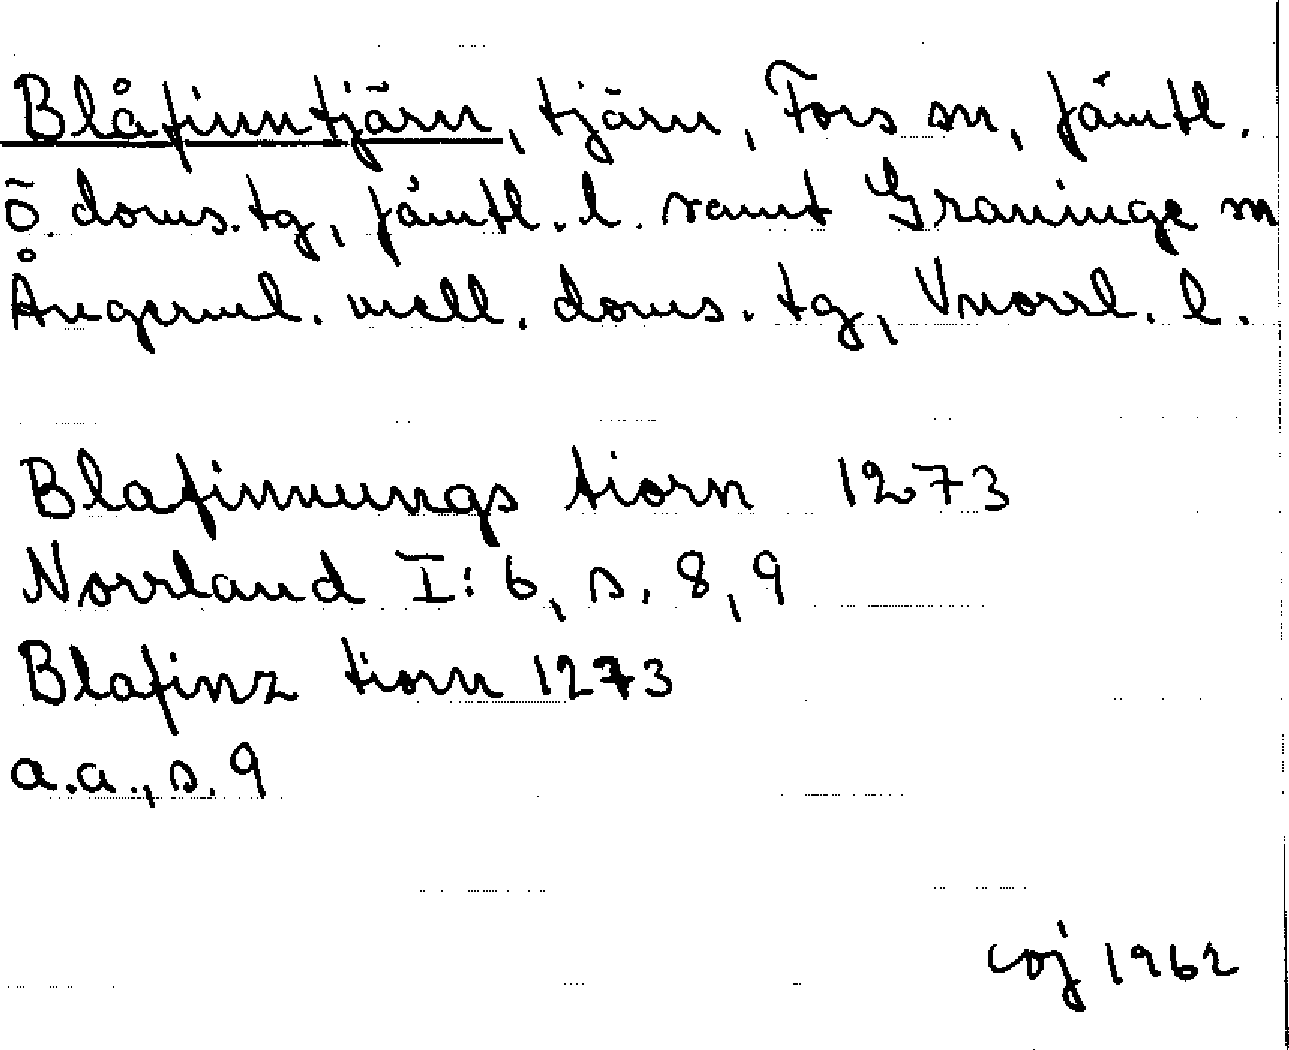 Blåfinntjärn, tjärn, Fors sn, Jämtl.
ö. doms. tg, Jämtl. l. samt Graninge sn
Ångerml. mell. doms. tg, Vnorrl. l.
Blafinnungs tiorn 1273
Norrland I: 6, s. 8, 9
Blafinz tiorn 1273
a.a., s. 9
coj 1962